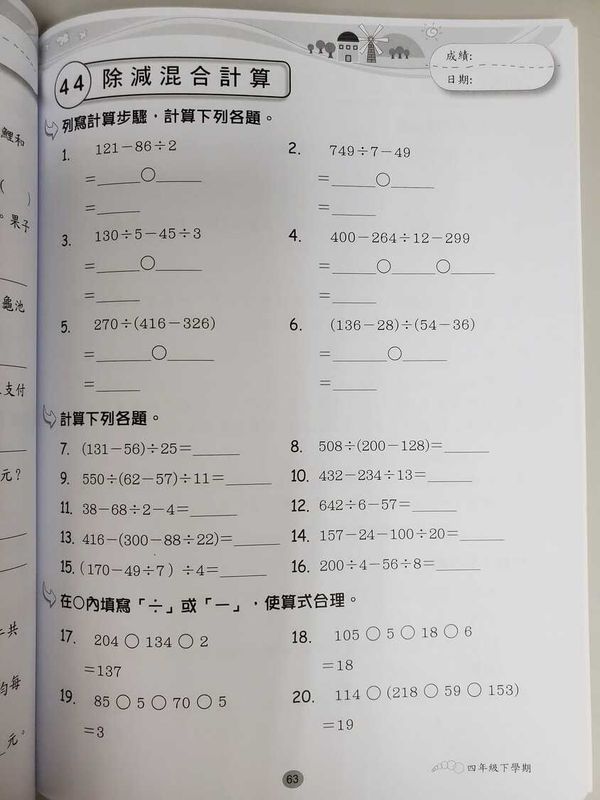 44 除減混合計算
成績:
日期:
列寫計算步驟，計算下列各題。
1. 121－86÷2
=_____○_____
=_____
2. 749÷7－49
=_____○_____
=_____
3. 130÷5－45÷3
=_____○_____
=_____
4. 400－264÷12－299
=_____○_____○_____
=_____
5. 270÷(416－326)
=_____○_____
=_____
6. (136－28)÷(54－36)
=_____○_____
=_____
計算下列各題。
7. (131－56)÷25=_____
8. 508÷(200－128)=_____
9. 550÷(62－57)÷11=_____
10. 432－234÷13=_____
11. 38－68÷2－4=_____
12. 642÷6－57=_____
13. 416－(300－88÷22)=_____
14. 157－24－100÷20=_____
15. (170－49÷7 ) ÷4=_____
16. 200÷4－56÷8=_____
在○內填寫「÷」或「－」，使算式合理。
17. 204 ○ 134 ○ 2
=137
18. 105 ○ 5 ○ 18 ○ 6
=18
19. 85 ○ 5 ○ 70 ○ 5
=3
20. 114 ○ (218 ○ 59 ○ 153)
=19
四年級下學期
63
鯉和
( )
。果子
龜池
支付
元？
共
均每
元。